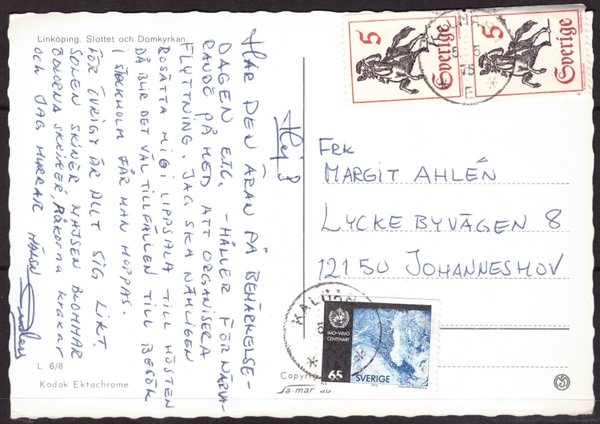 Linköping. Slottet och Domkyrkan.
HAR DEN ÄRAN PÅ BEMÄRKELSE-
DAGEN ETC. - HÅLLER FÖRNÄRVA-
RANDE PÅ MED ATT ORGANISERA
FLYTTNING. JAG SKA NÄMLIGEN
BOSÄTTA MIG I UPPSALA TILL HÖSTEN
DÅ BLIR DET VÄL TILLFÄLLEN TILL BESÖK
I STOCKHOLM FÅR MAN HOPPAS.
FÖR ÖVRIGT ÄR ALLT SIG LIKT.
SOLEN SKINER MAJSEN BLOMMAR
KRÅKORNA KRAXAR
OCH JAG HURRAR HÄLSN
L. 6/8
Kodak Ektachrome
Hej!
FRK
MARGIT AHLÉN
LYCKEBYVÄGEN 8
121 50 JOHANNESHOV
5
Sverige
5
Sverige
75
E
KALMAR
IMO-WMO
CENTENARY
65
SVERIGE